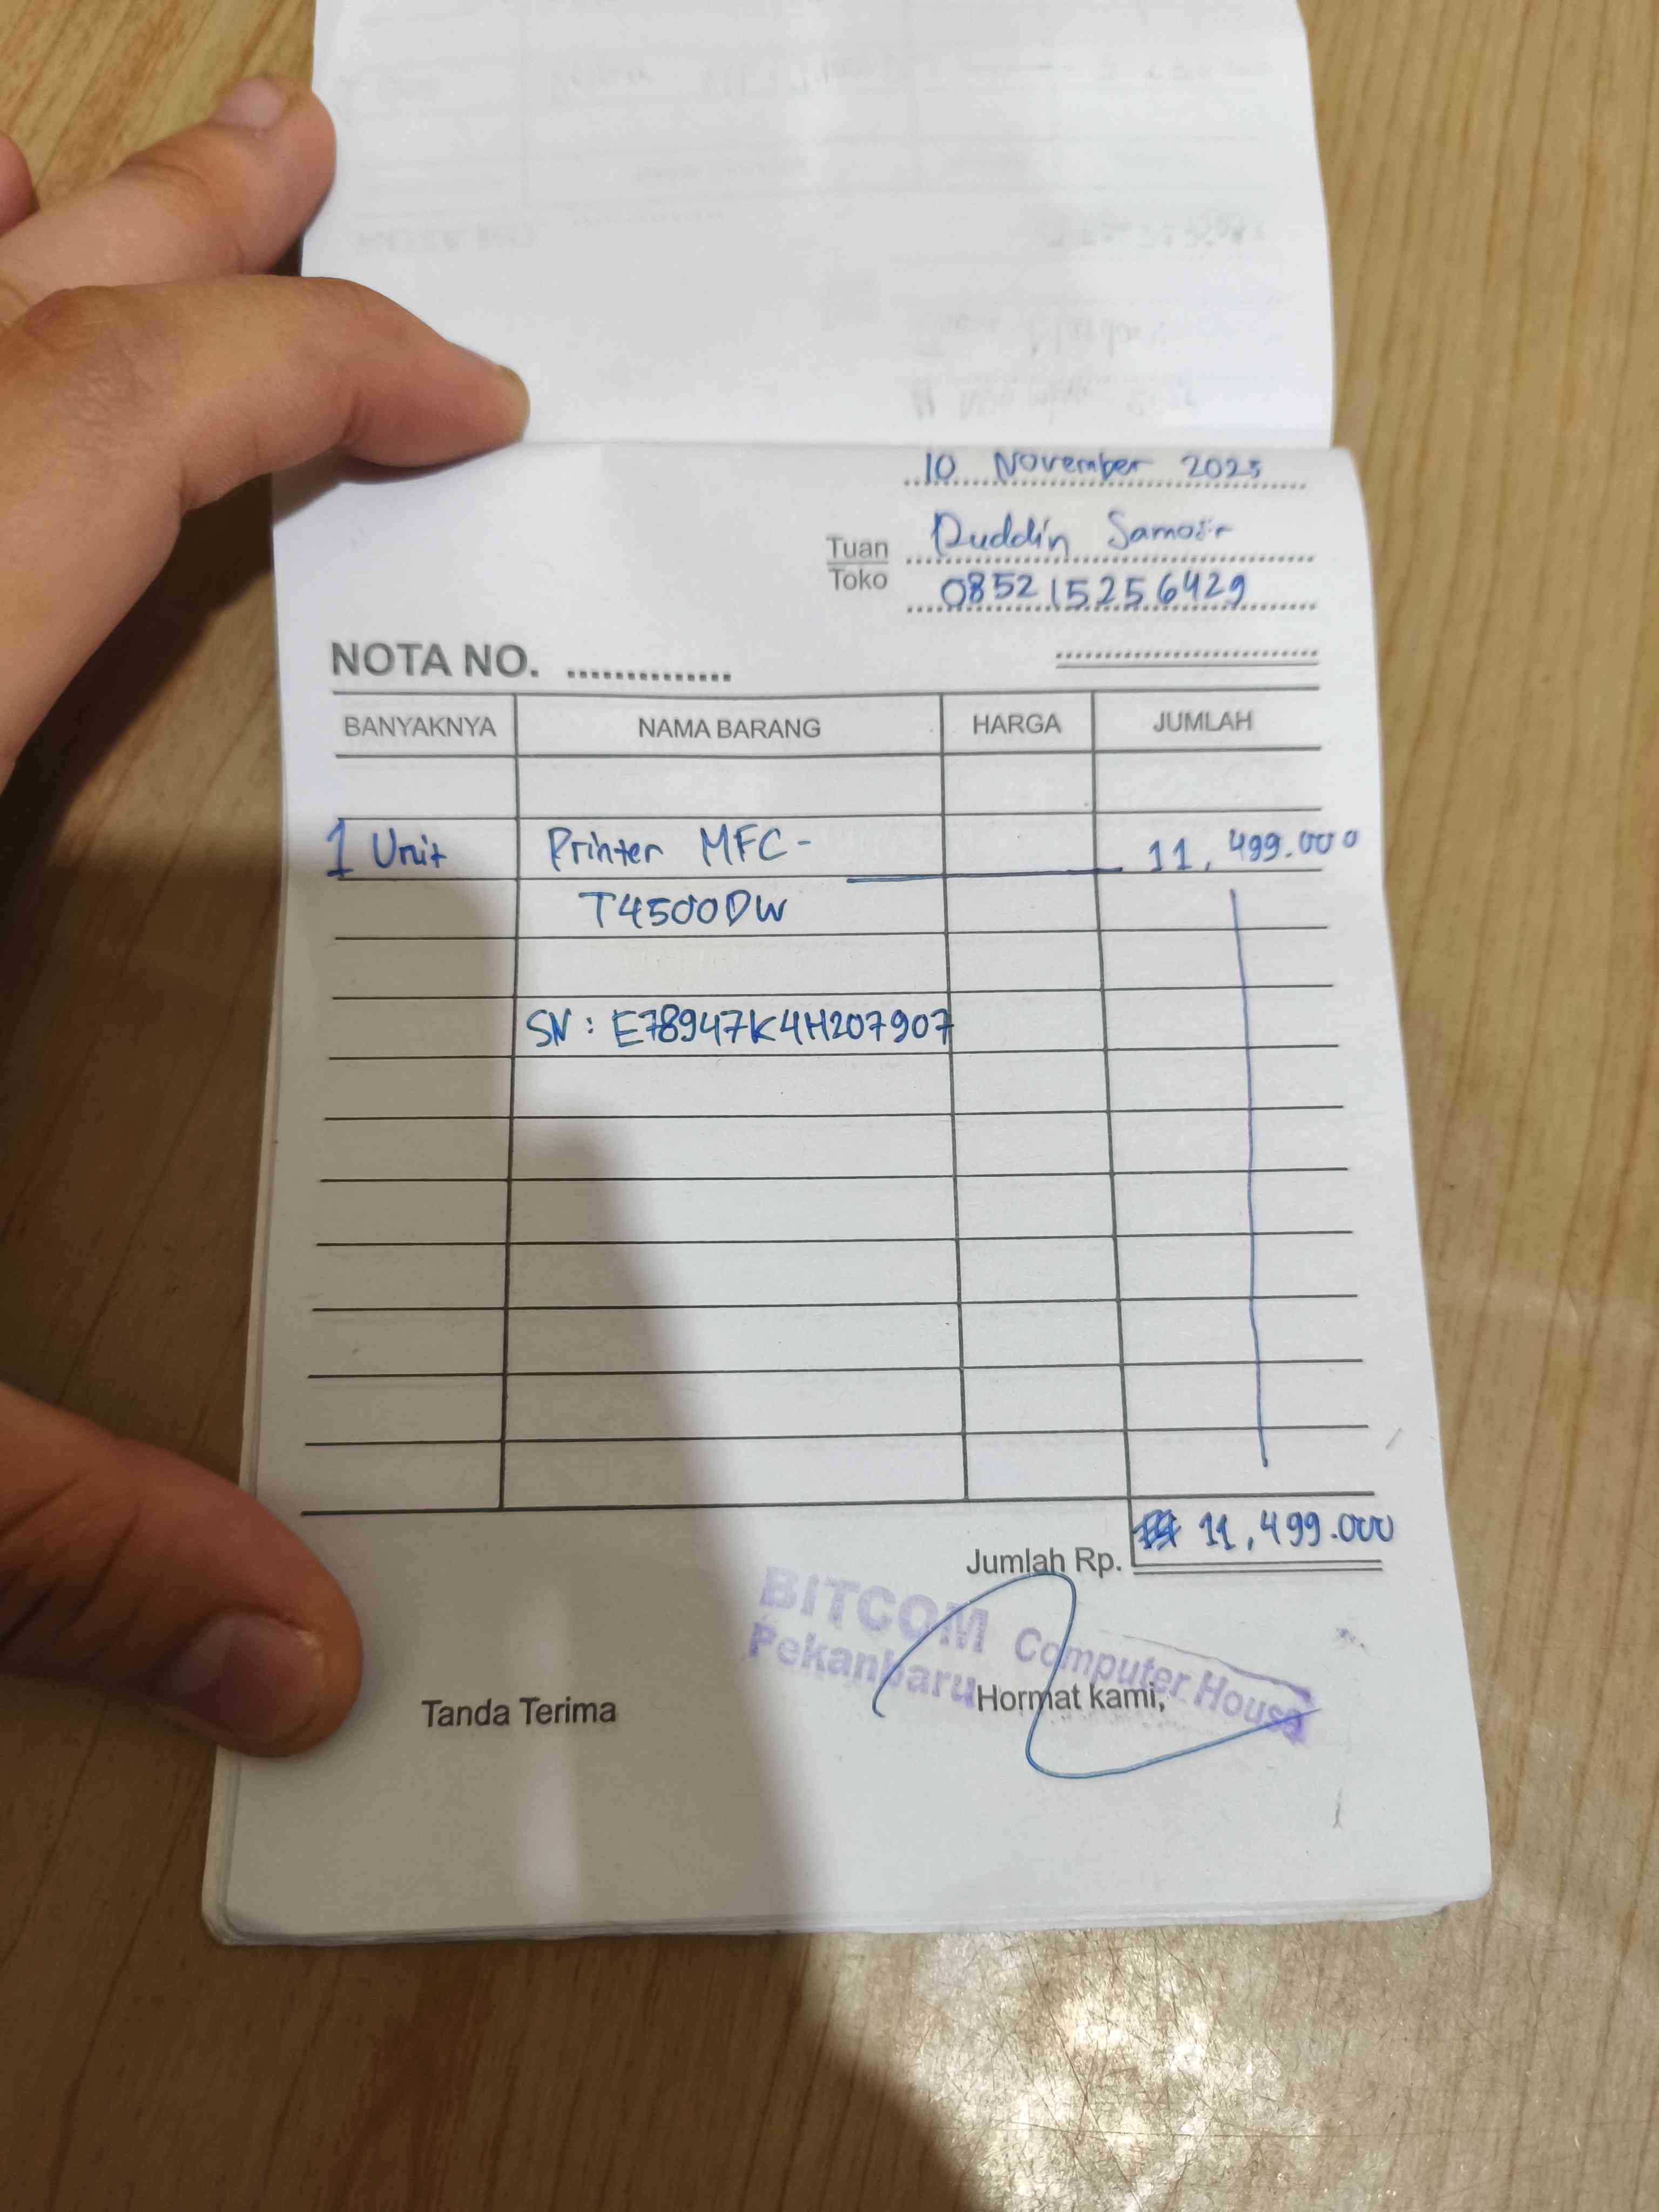 10 November 2025
Tuan Duddin Samosir
Toko 085215256429
NOTA NO. ..............
BANYAKNYA NAMA BARANG HARGA JUMLAH
1 Unit Printer MFC- 11,499.000
T4500DW
SN : E78947K4H207907
Jumlah Rp. 11,499.000
BITCOM Computer House
Pekanbaru
Tanda Terima Hormat kami,